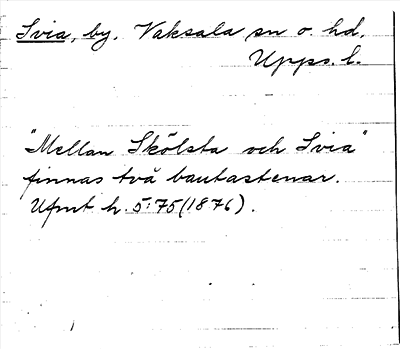 Svia, by, Vaksala sn o. hd,
Upps. l.
"Mellan Skölsta och Svia"
finnas två bautastenar.
Ufmt h. 5:75 (1876).